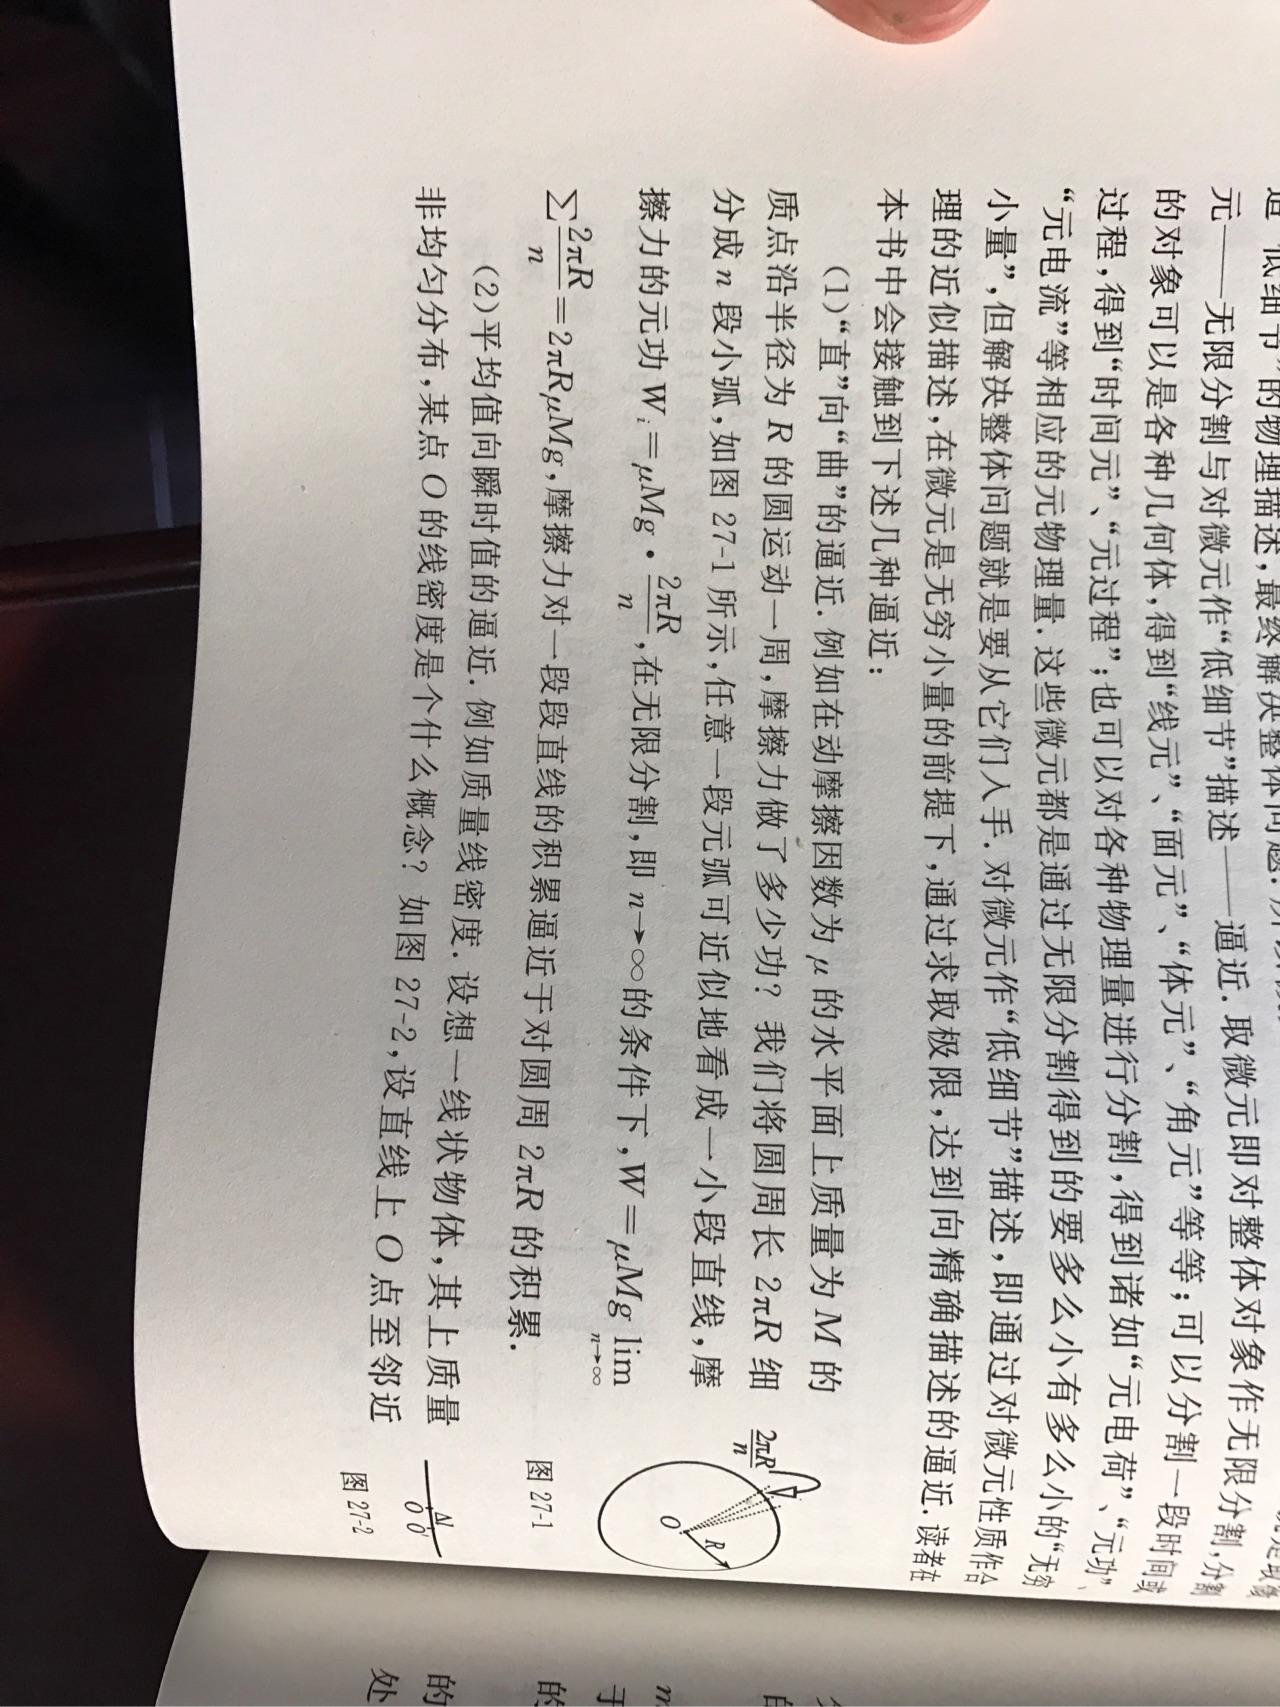 元——无限分割与对微元作“低细节”描述——逼近.取微元即对整体对象作无限分割,分割
的对象可以是各种几何体,得到“线元”、“面元”、“体元”、“角元”等等;可以分割一段时间或
过程,得到“时间元”、“元过程”;也可以对各种物理量进行分割,得到诸如“元电荷”、“元功”、
“元电流”等相应的元物理量.这些微元都是通过无限分割得到的要多么小有多么小的“无穷
小量”,但解决整体问题就是要从它们入手.对微元作“低细节”描述,即通过对微元性质作合
理的近似描述,在微元是无穷小量的前提下,通过求取极限,达到向精确描述的逼近.读者在
本书中会接触到下述几种逼近:
(1)“直”向“曲”的逼近.例如在动摩擦因数为 μ 的水平面上质量为 M 的
质点沿半径为 R 的圆运动一周,摩擦力做了多少功?我们将圆周长 2πR 细
分成 n 段小弧,如图 27-1 所示,任意一段元弧可近似地看成一小段直线,摩
擦力的元功 W_i=μMg·\frac{2πR}{n},在无限分割,即 n→∞的条件下,W=μMg \lim_{n→∞}
∑\frac{2πR}{n}=2πRμMg,摩擦力对一段段直线的积累逼近于对圆周 2πR 的积累.
\frac{2πR}{n}
O
R
图 27-1
(2)平均值向瞬时值的逼近.例如质量线密度.设想一线状物体,其上质量
非均匀分布,某点 O 的线密度是个什么概念?如图 27-2,设直线上 O 点至邻近
Δl
O O′
图 27-2
的
处